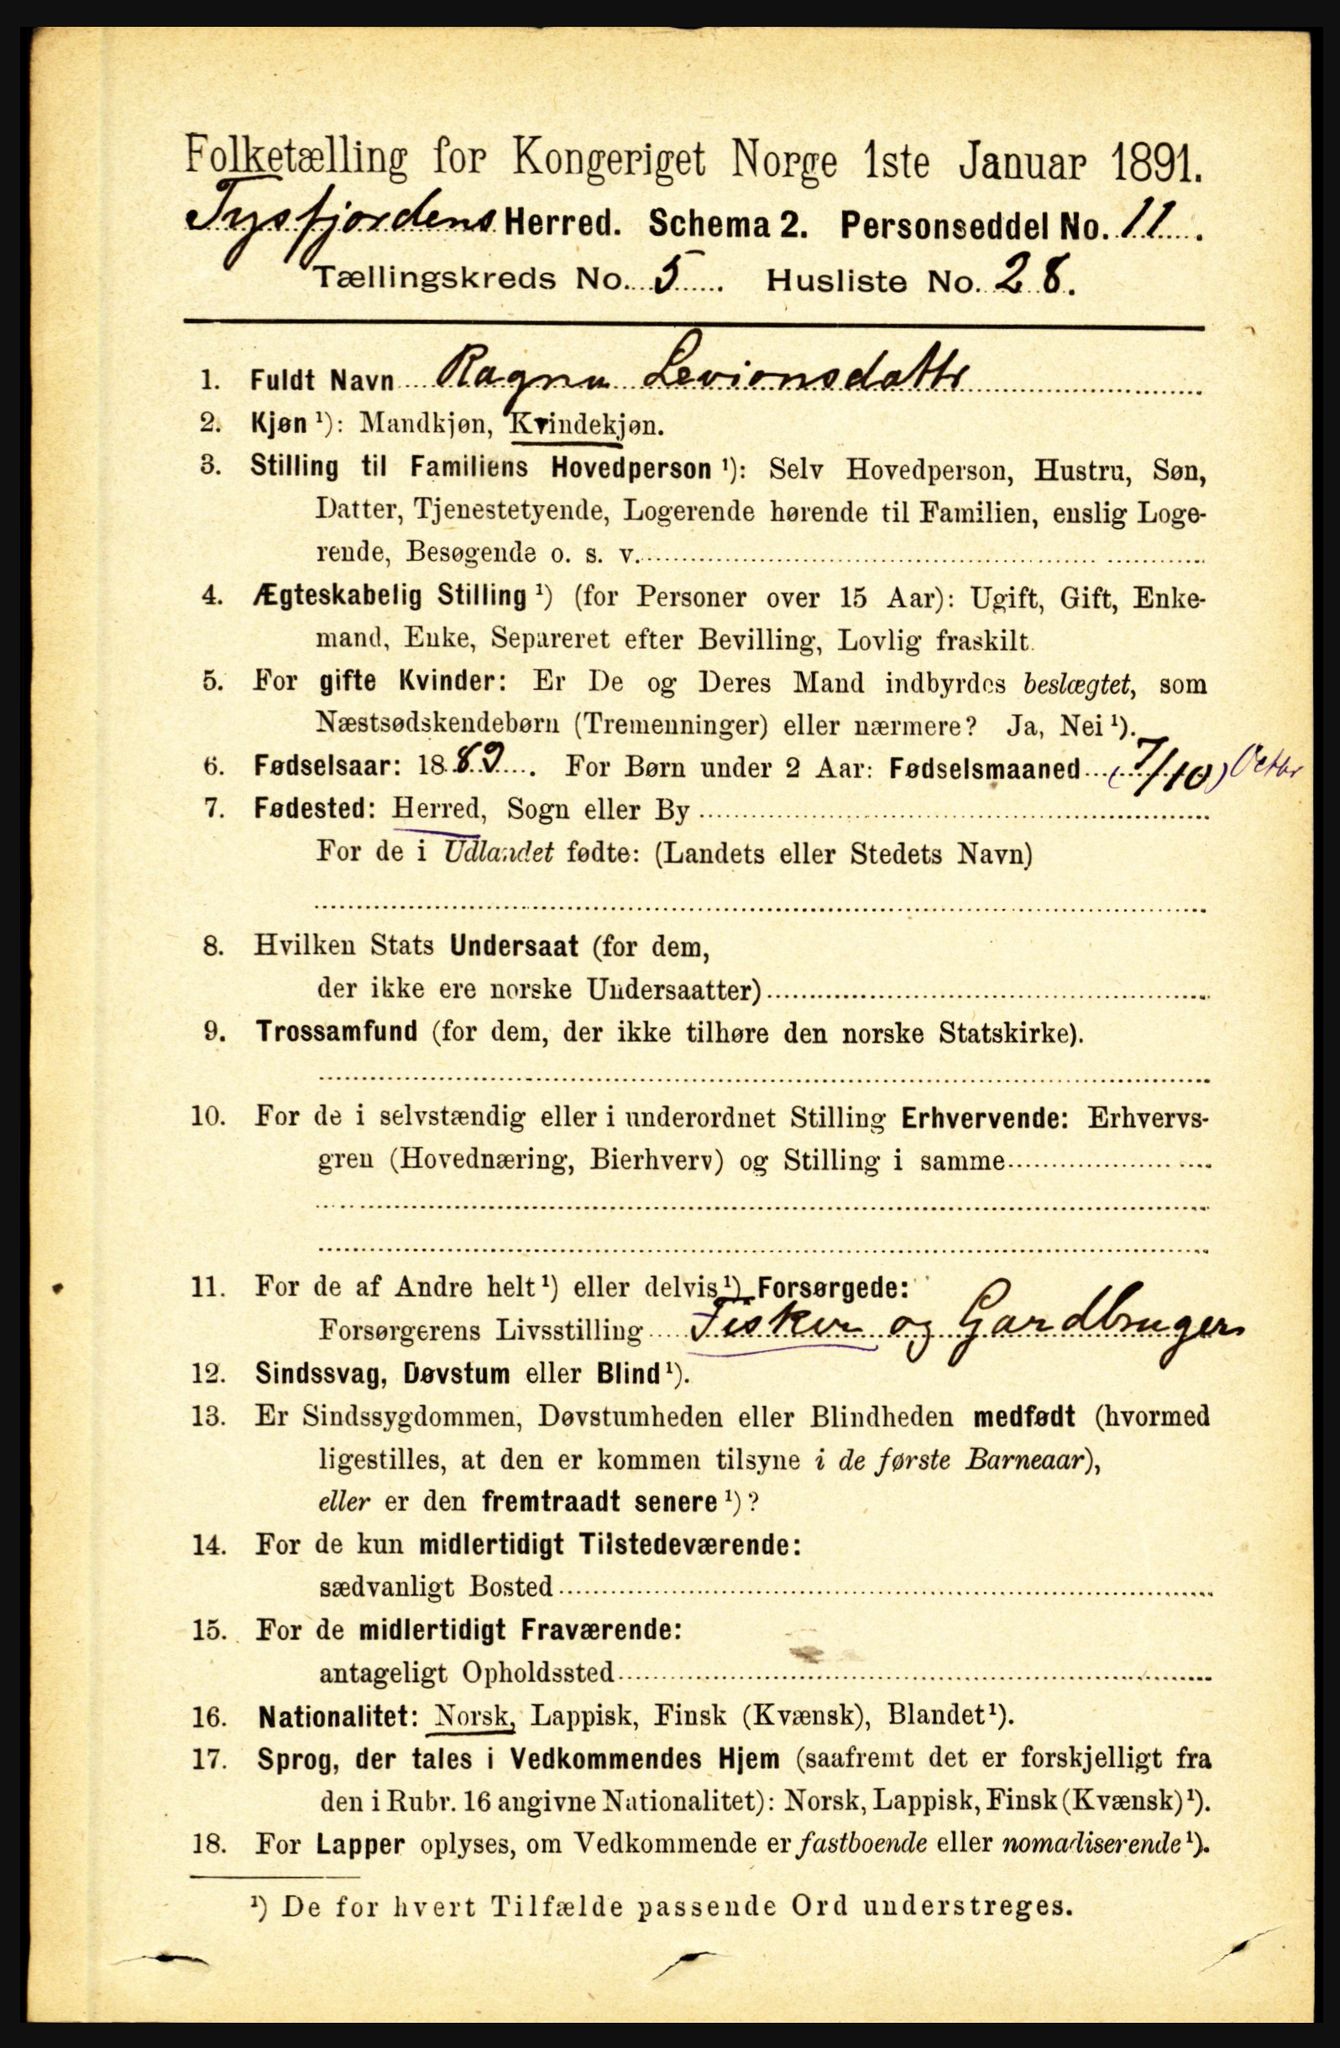 Folketælling for Kongeriget Norge 1ste Januar 1891.
Tysfjordens Herred. Schema 2. Personseddel No. 11.
Tællingskreds No. 5. Husliste No. 28.
1. Fuldt Navn Ragna Levionsdattr
2. Kjøn ¹): Mandkjøn, Kvindekjøn.
3. Stilling til Familiens Hovedperson ¹): Selv Hovedperson, Hustru, Søn,
Datter, Tjenestetyende, Logerende hørende til Familien, enslig Loge-
rende, Besøgende o. s. v.
4. Ægteskabelig Stilling ¹) (for Personer over 15 Aar): Ugift, Gift, Enke-
mand, Enke, Separeret efter Bevilling, Lovlig fraskilt.
5. For gifte Kvinder: Er De og Deres Mand indbyrdes beslægtet, som
Næstsødskendebørn (Tremenninger) eller nærmere? Ja, Nei ¹).
6. Fødselsaar: 1889. For Børn under 2 Aar: Fødselsmaaned (7/10) Octbr
7. Fødested: Herred, Sogn eller By
For de i Udlandet fødte: (Landets eller Stedets Navn)
8. Hvilken Stats Undersaat (for dem,
der ikke ere norske Undersaatter)
9. Trossamfund (for dem, der ikke tilhøre den norske Statskirke).
10. For de i selvstændig eller i underordnet Stilling Erhvervende: Erhvervs-
gren (Hovednæring, Bierhverv) og Stilling i samme
11. For de af Andre helt ¹) eller delvis ¹) Forsørgede:
Forsørgerens Livsstilling Fisker og Gardbruger
12. Sindssvag, Døvstum eller Blind ¹).
13. Er Sindssygdommen, Døvstumheden eller Blindheden medfødt (hvormed
ligestilles, at den er kommen tilsyne i de første Barneaar),
eller er den fremtraadt senere ¹)?
14. For de kun midlertidigt Tilstedeværende:
sædvanligt Bosted
15. For de midlertidigt Fraværende:
antageligt Opholdssted
16. Nationalitet: Norsk, Lappisk, Finsk (Kvænsk), Blandet ¹).
17. Sprog, der tales i Vedkommendes Hjem (saafremt det er forskjelligt fra
den i Rubr. 16 angivne Nationalitet): Norsk, Lappisk, Finsk (Kvænsk) ¹).
18. For Lapper oplyses, om Vedkommende er fastboende eller nomadiserende ¹).
¹) De for hvert Tilfælde passende Ord understreges.